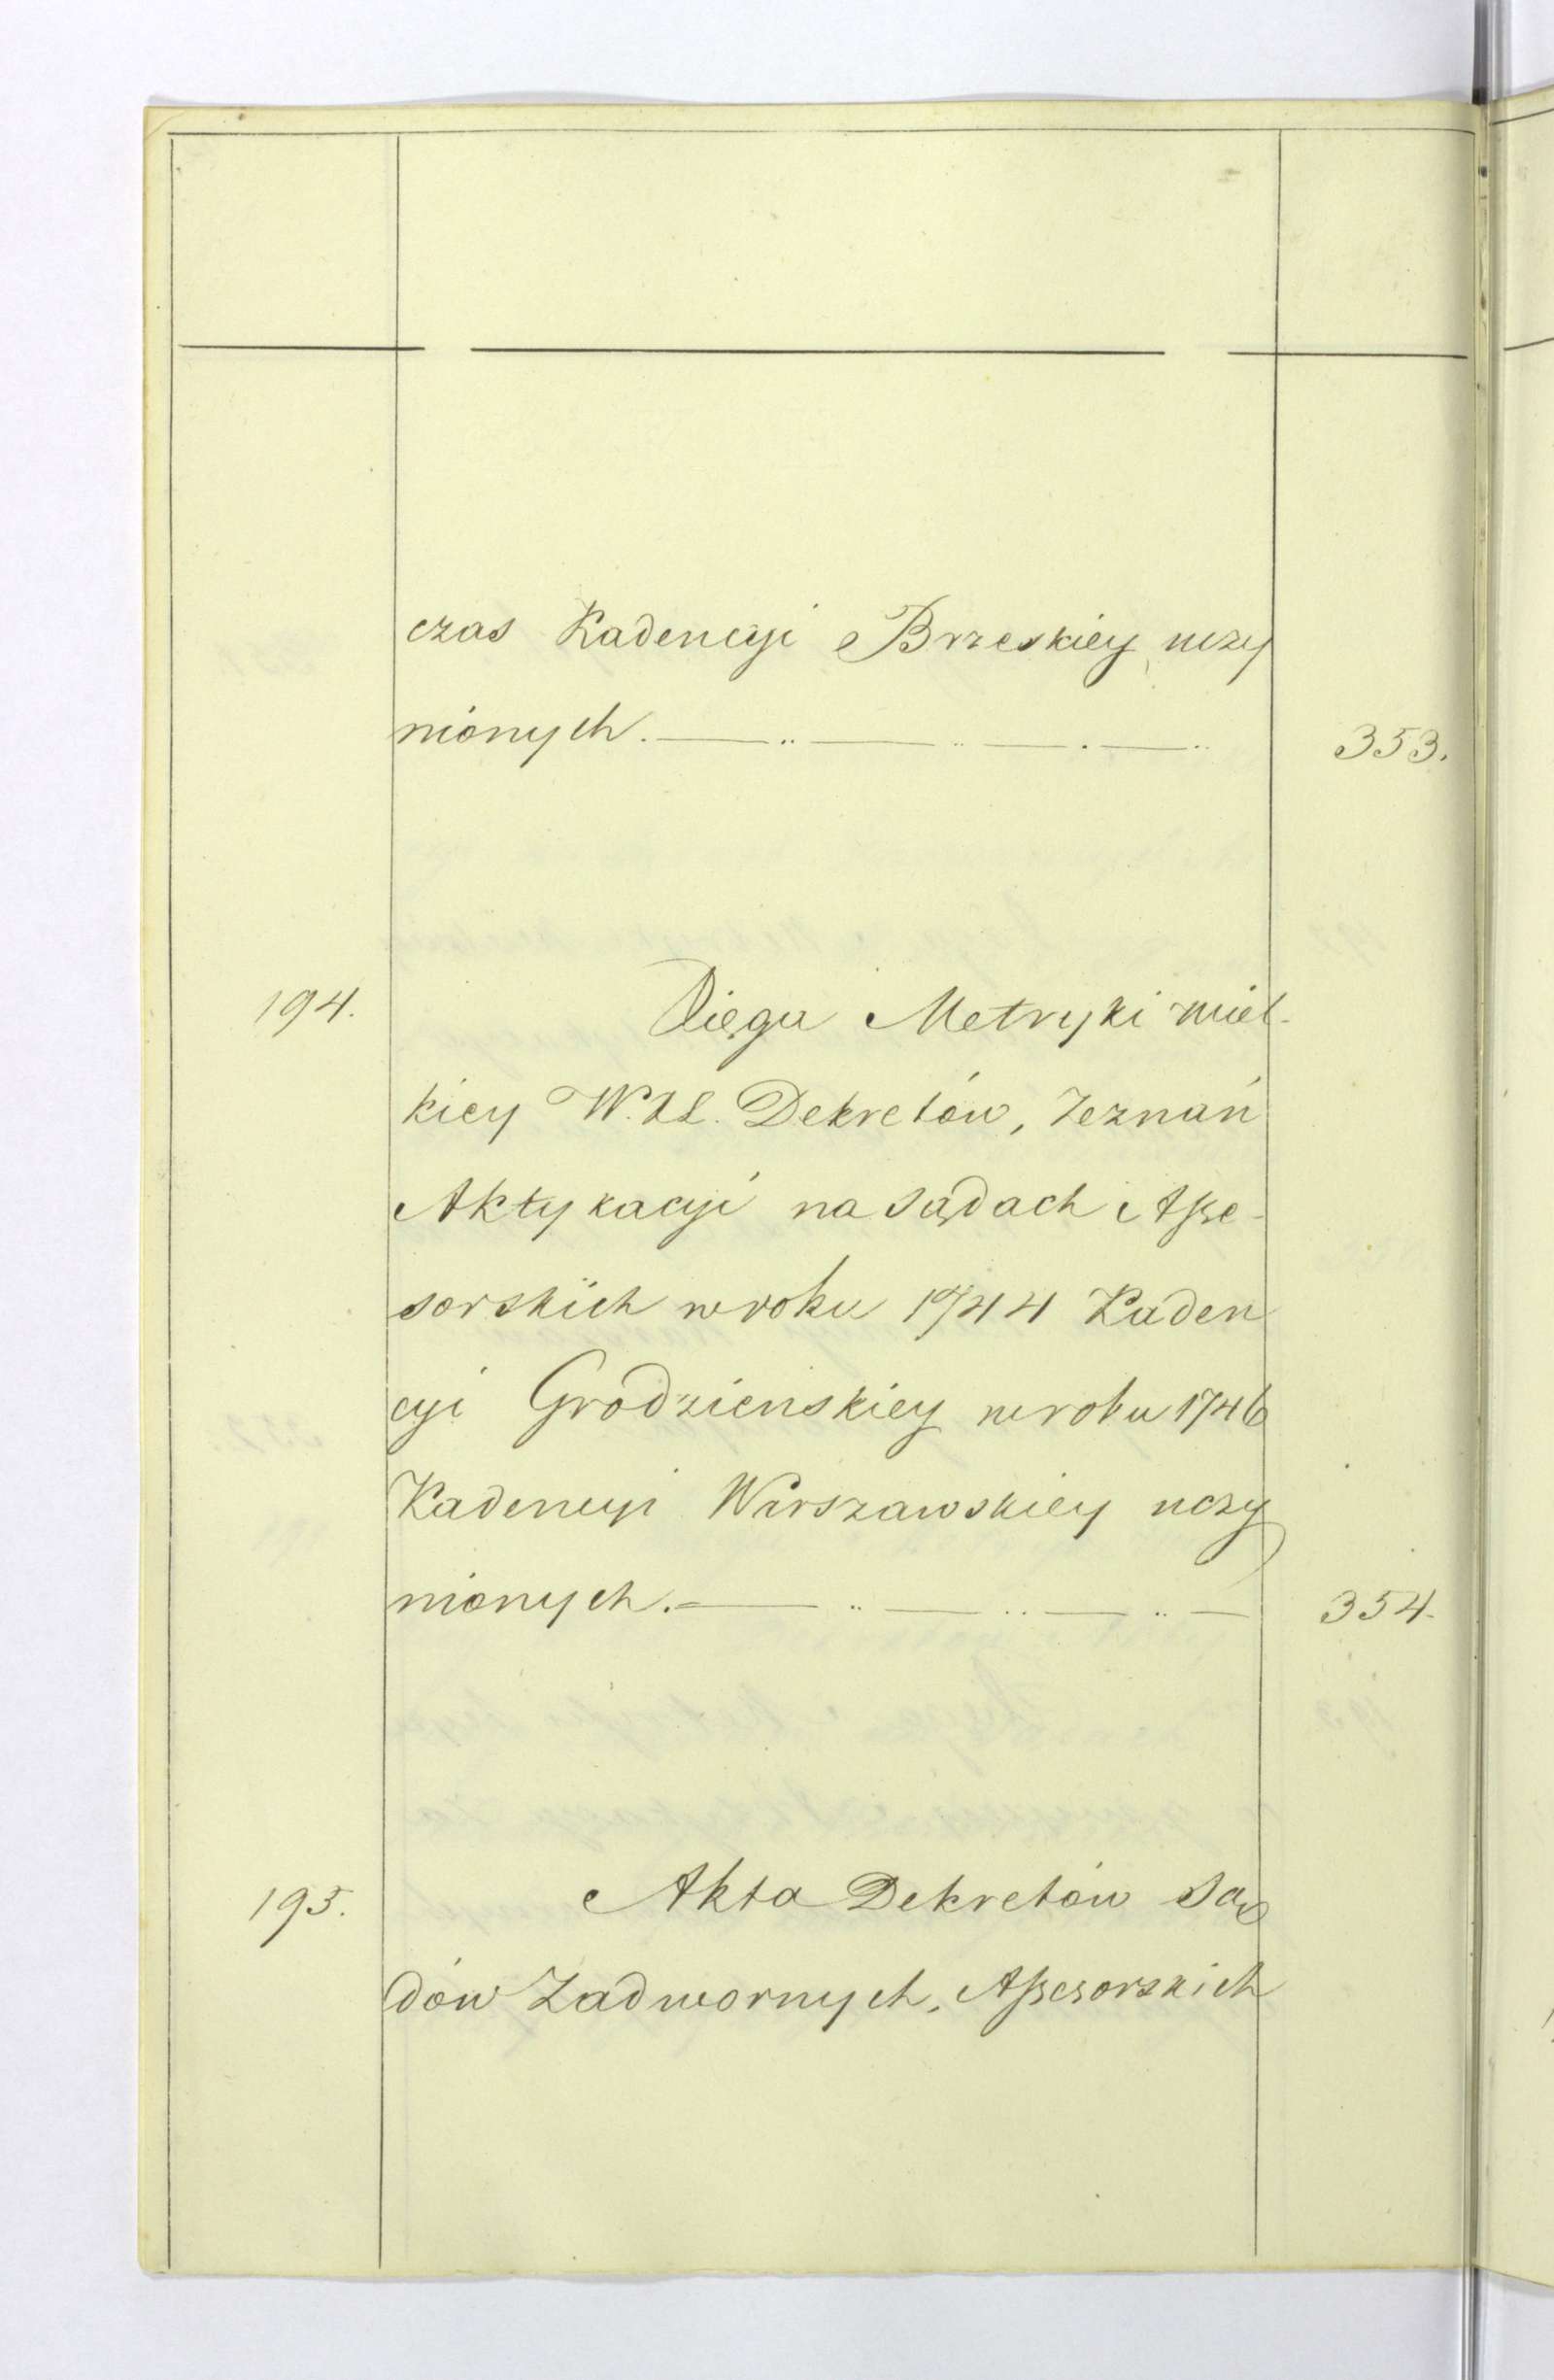 czas Kadencyi Brzeskiey uczy
nionych. 353.
194. Xięga Metryki wiel-
kiey W.X.L. Dekretów, Zeznań
Aktykacyi na Sądach Asse-
sorskich w roku 1744 Kaden
cyi Grodzienskiey w roku 1746
Kadencyi Warszawskiey uczy
nionych. 354.
195. Akta Dekretów Są
dów Zadwornych, Assesorskich